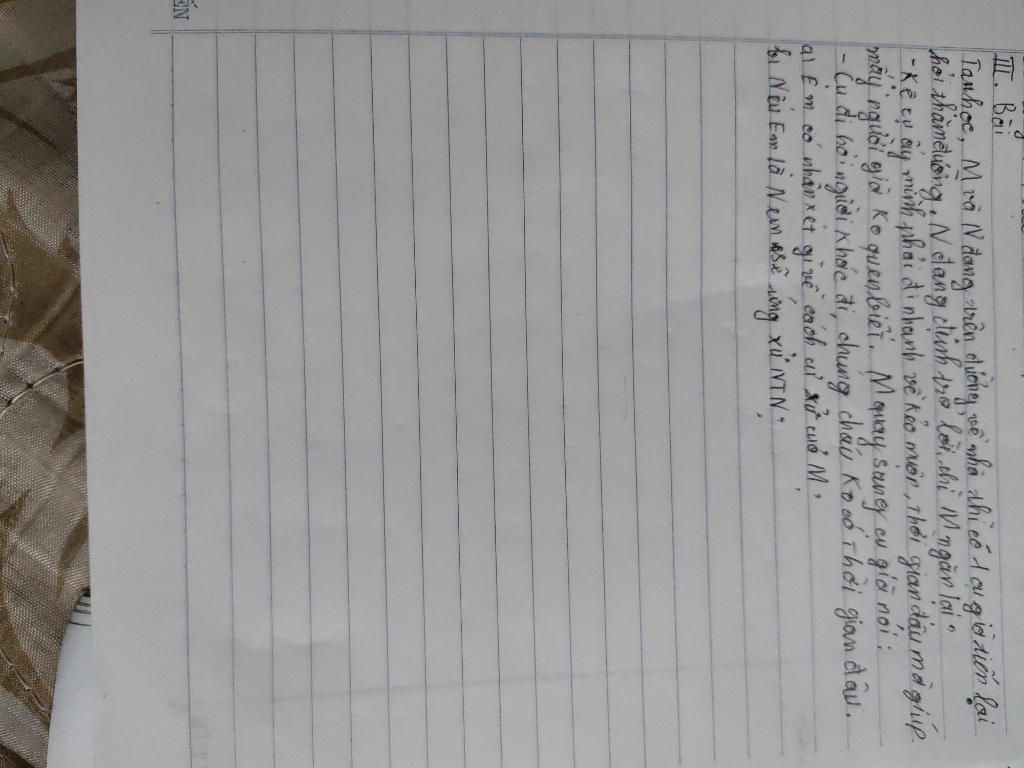 III. Bài
Tan học, M và N đang trên đường về nhà thì có 1 cụ già tiến lại
hỏi thăm đường. N đang định trả lời thì M ngăn lại:
- Kệ cụ ấy mình phải đi nhanh về kẻo muộn, thời gian đâu mà giúp
mấy người già ko quen biết. M quay sang cụ già nói:
- Cụ đi hỏi người khác đi, chúng cháu ko có thời gian đâu.
a) Em có nhận xét gì về cách cư xử của M.
b) Nếu Em là N em sẽ ứng xử NTN.
ẾN